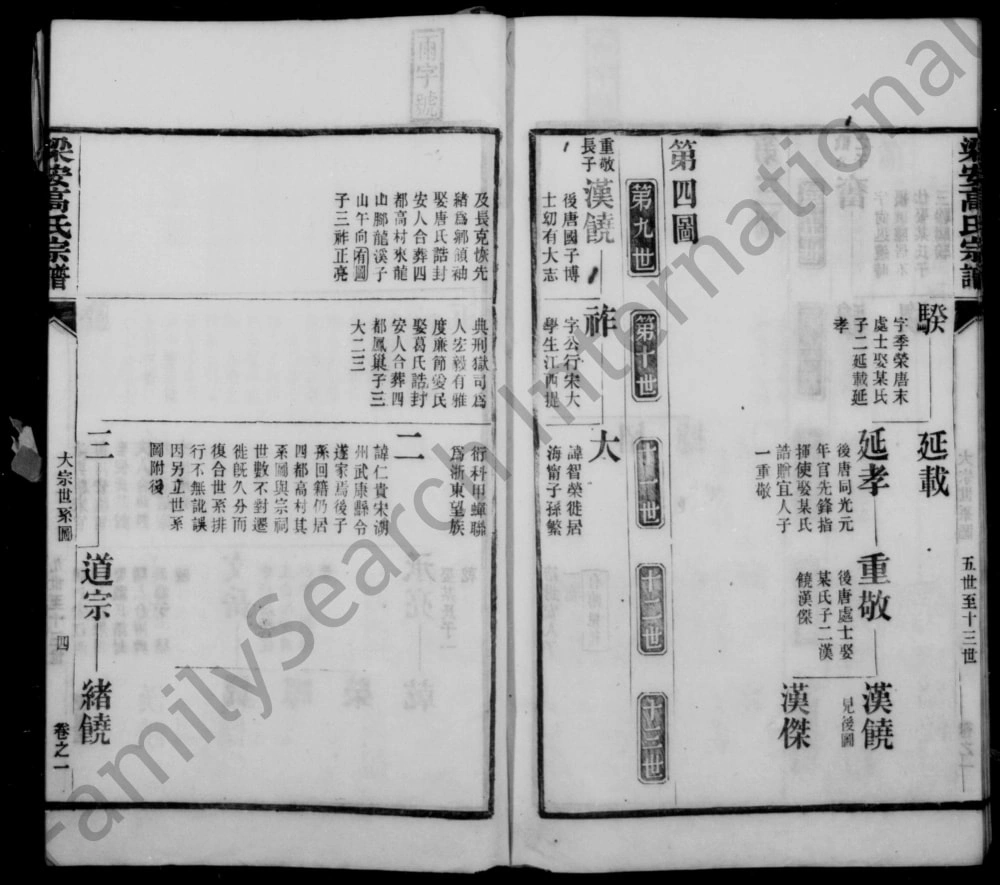 梁安高氏宗譜
五世至十三世
騤
字季榮唐末
處士娶某氏
子二延載延
孝
延載
延孝
後唐同光元
年官先鋒指
揮使娶某氏
誥贈宜人子
一重敬
重敬
後唐處士娶
某氏子二漢
饒漢傑
漢饒
見後圖
漢傑
第四圖
第九世
第十世
十一世
十二世
十三世
重敬
長子
漢饒
後唐國子博
士幼有大志
祚
字公行宋大
學生江西提
大
諱智榮徙居
海甯子孫繁
雨字號
及長克恢先
緒爲鄉領袖
娶唐氏誥封
安人合葬四
都高村來龍
山腳龍溪子
山午向有圖
子三祚正亮
典刑獄司爲
人宏毅有雅
度廉節愛民
娶葛氏誥封
安人合葬四
都鳳巢子三
大二三
衍科甲蟬聯
爲浙東望族
二
諱仁貴宋湖
州武康縣令
遂家焉後子
孫回籍仍居
四都高村其
系圖與宗祠
世數不對遷
徙旣久分而
復合世系排
行不無訛誤
因另立世系
圖附後
三
道宗
緒饒
梁安高氏宗譜
大宗世系圖
四
卷之一
FamilySearch International